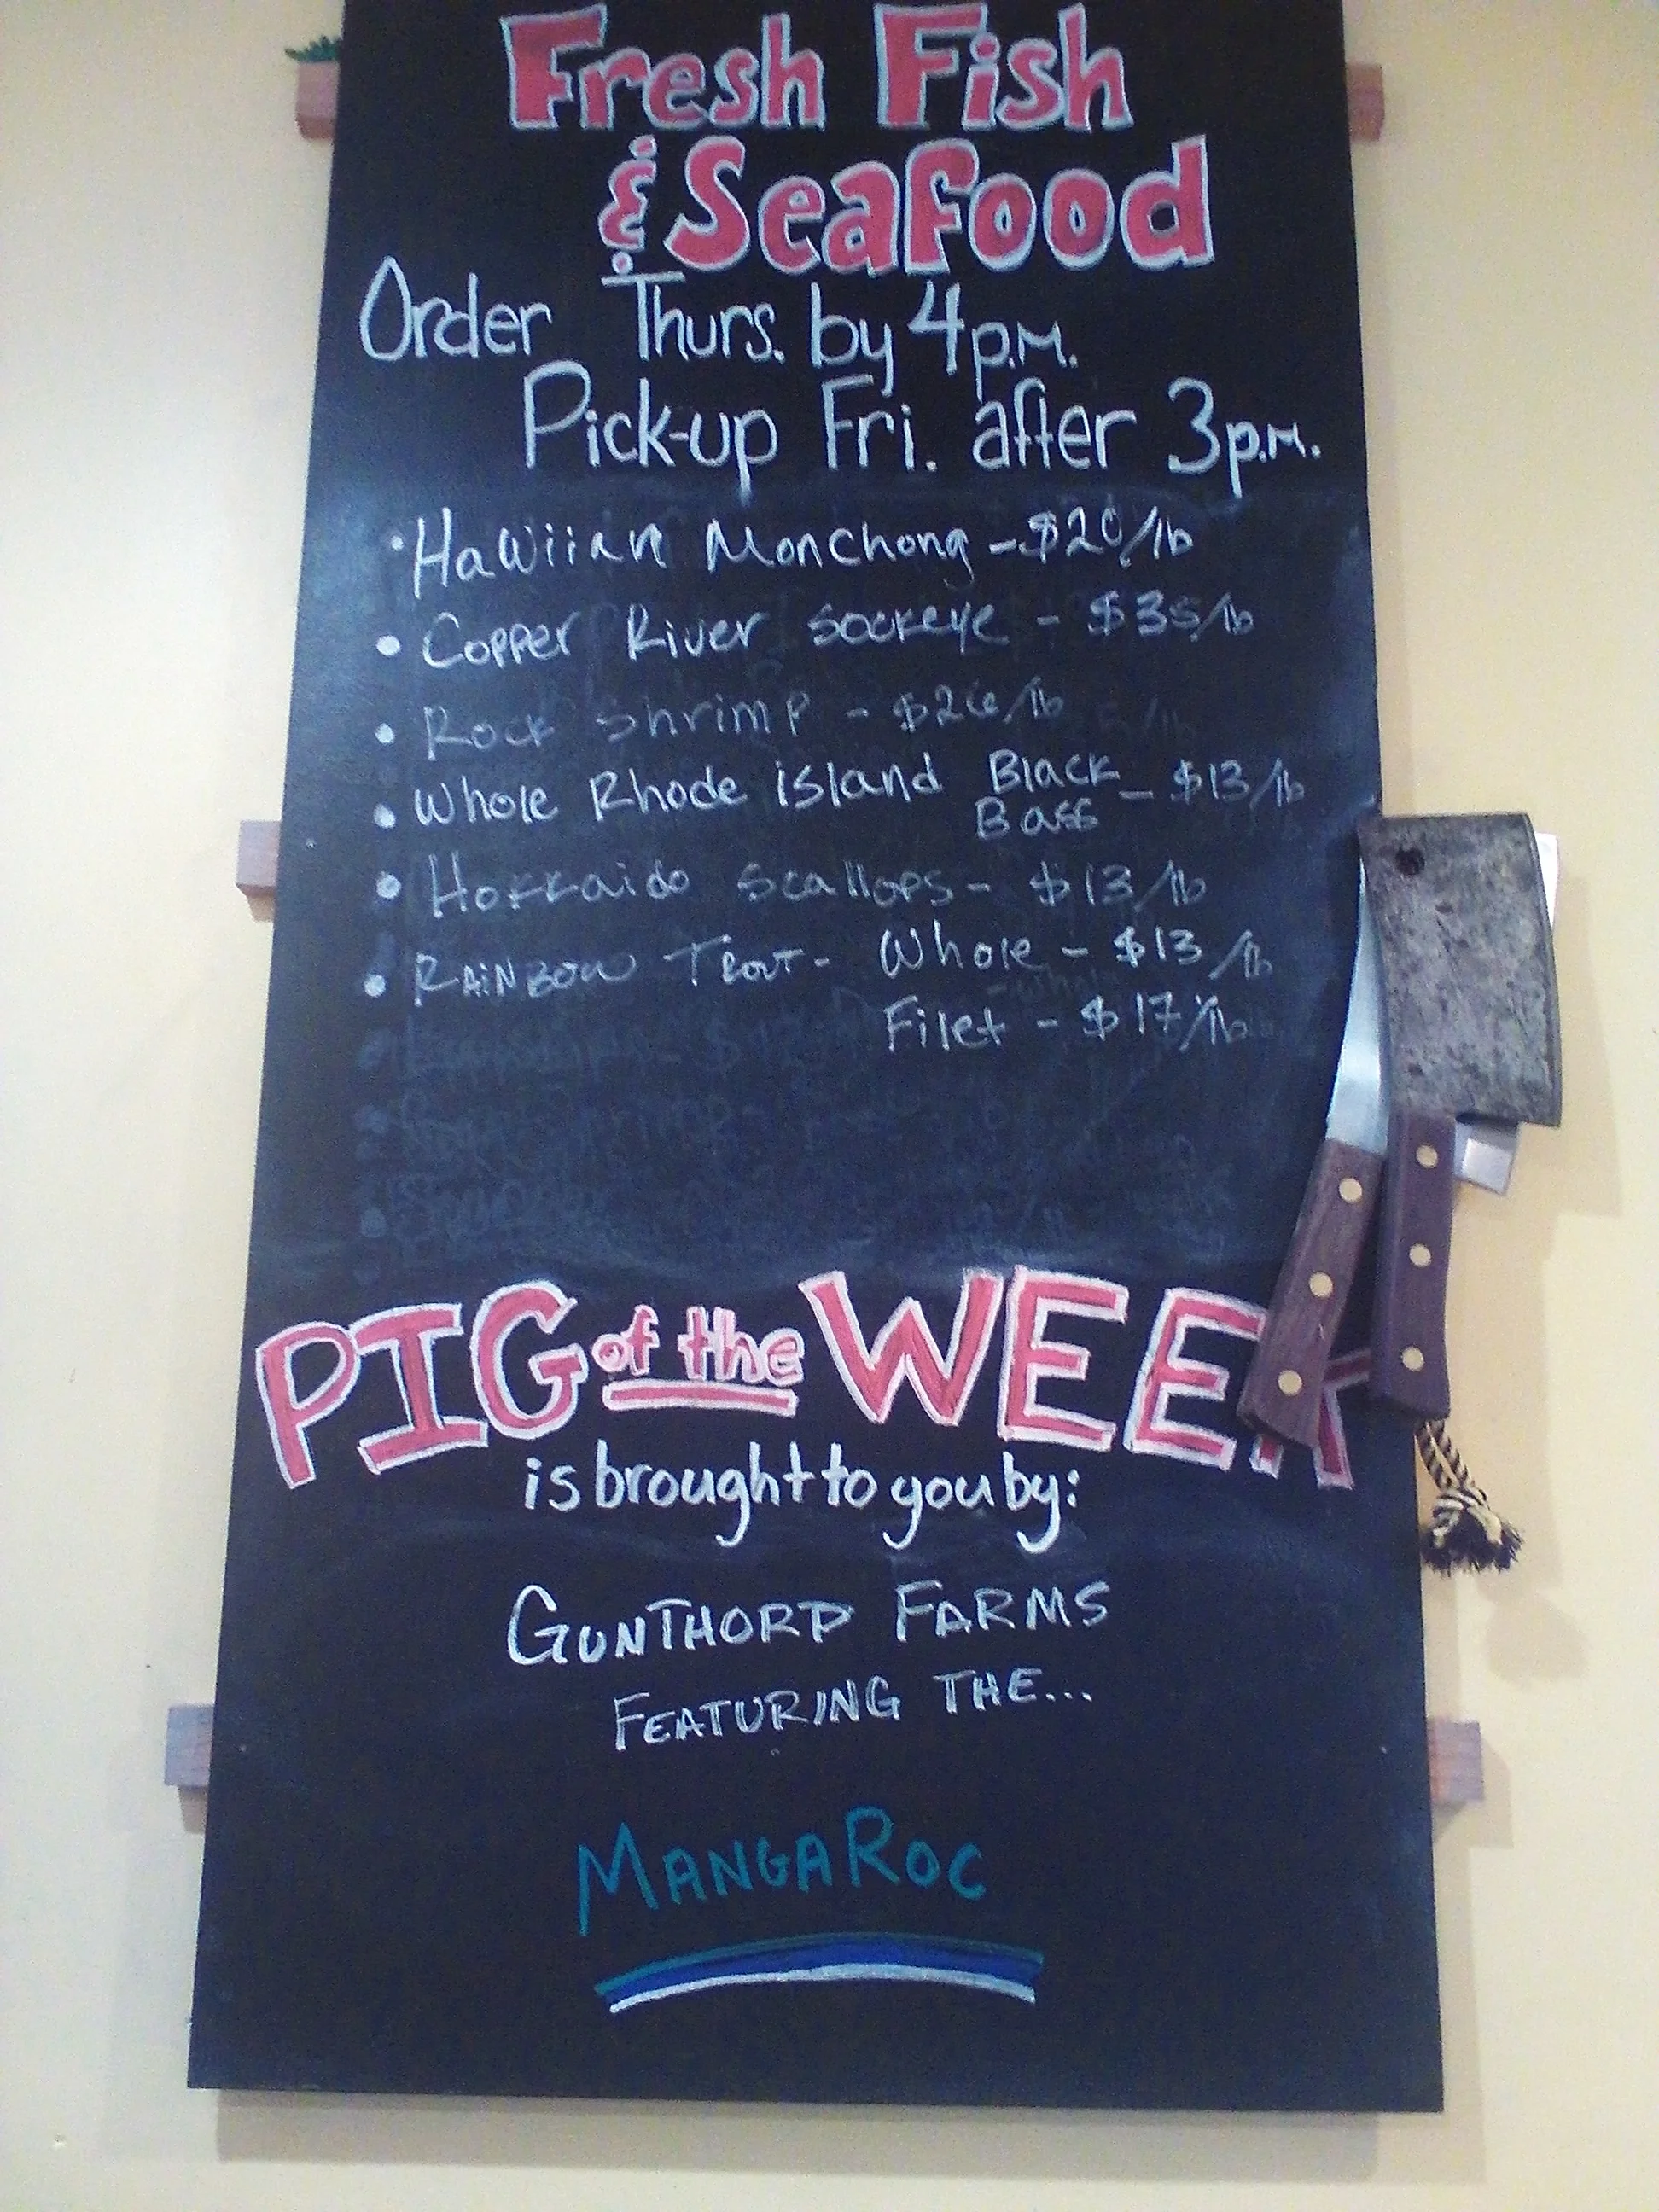 Fresh Fish
& Seafood
Order Thurs. by 4p.m.
Pick-up Fri. after 3p.m.
• Hawiian Monchong - $20/lb
• Copper River Sockeye - $35/lb
• Rock Shrimp - $26/lb
• Whole Rhode island Black Bass - $13/lb
• Hokkaido Scallops - $13/lb
• Rainbow Trout - Whole - $13/lb
Filet - $17/lb
PIG of the WEEK
is brought to you by:
GUNTHORP FARMS
FEATURING THE...
MANGAROC